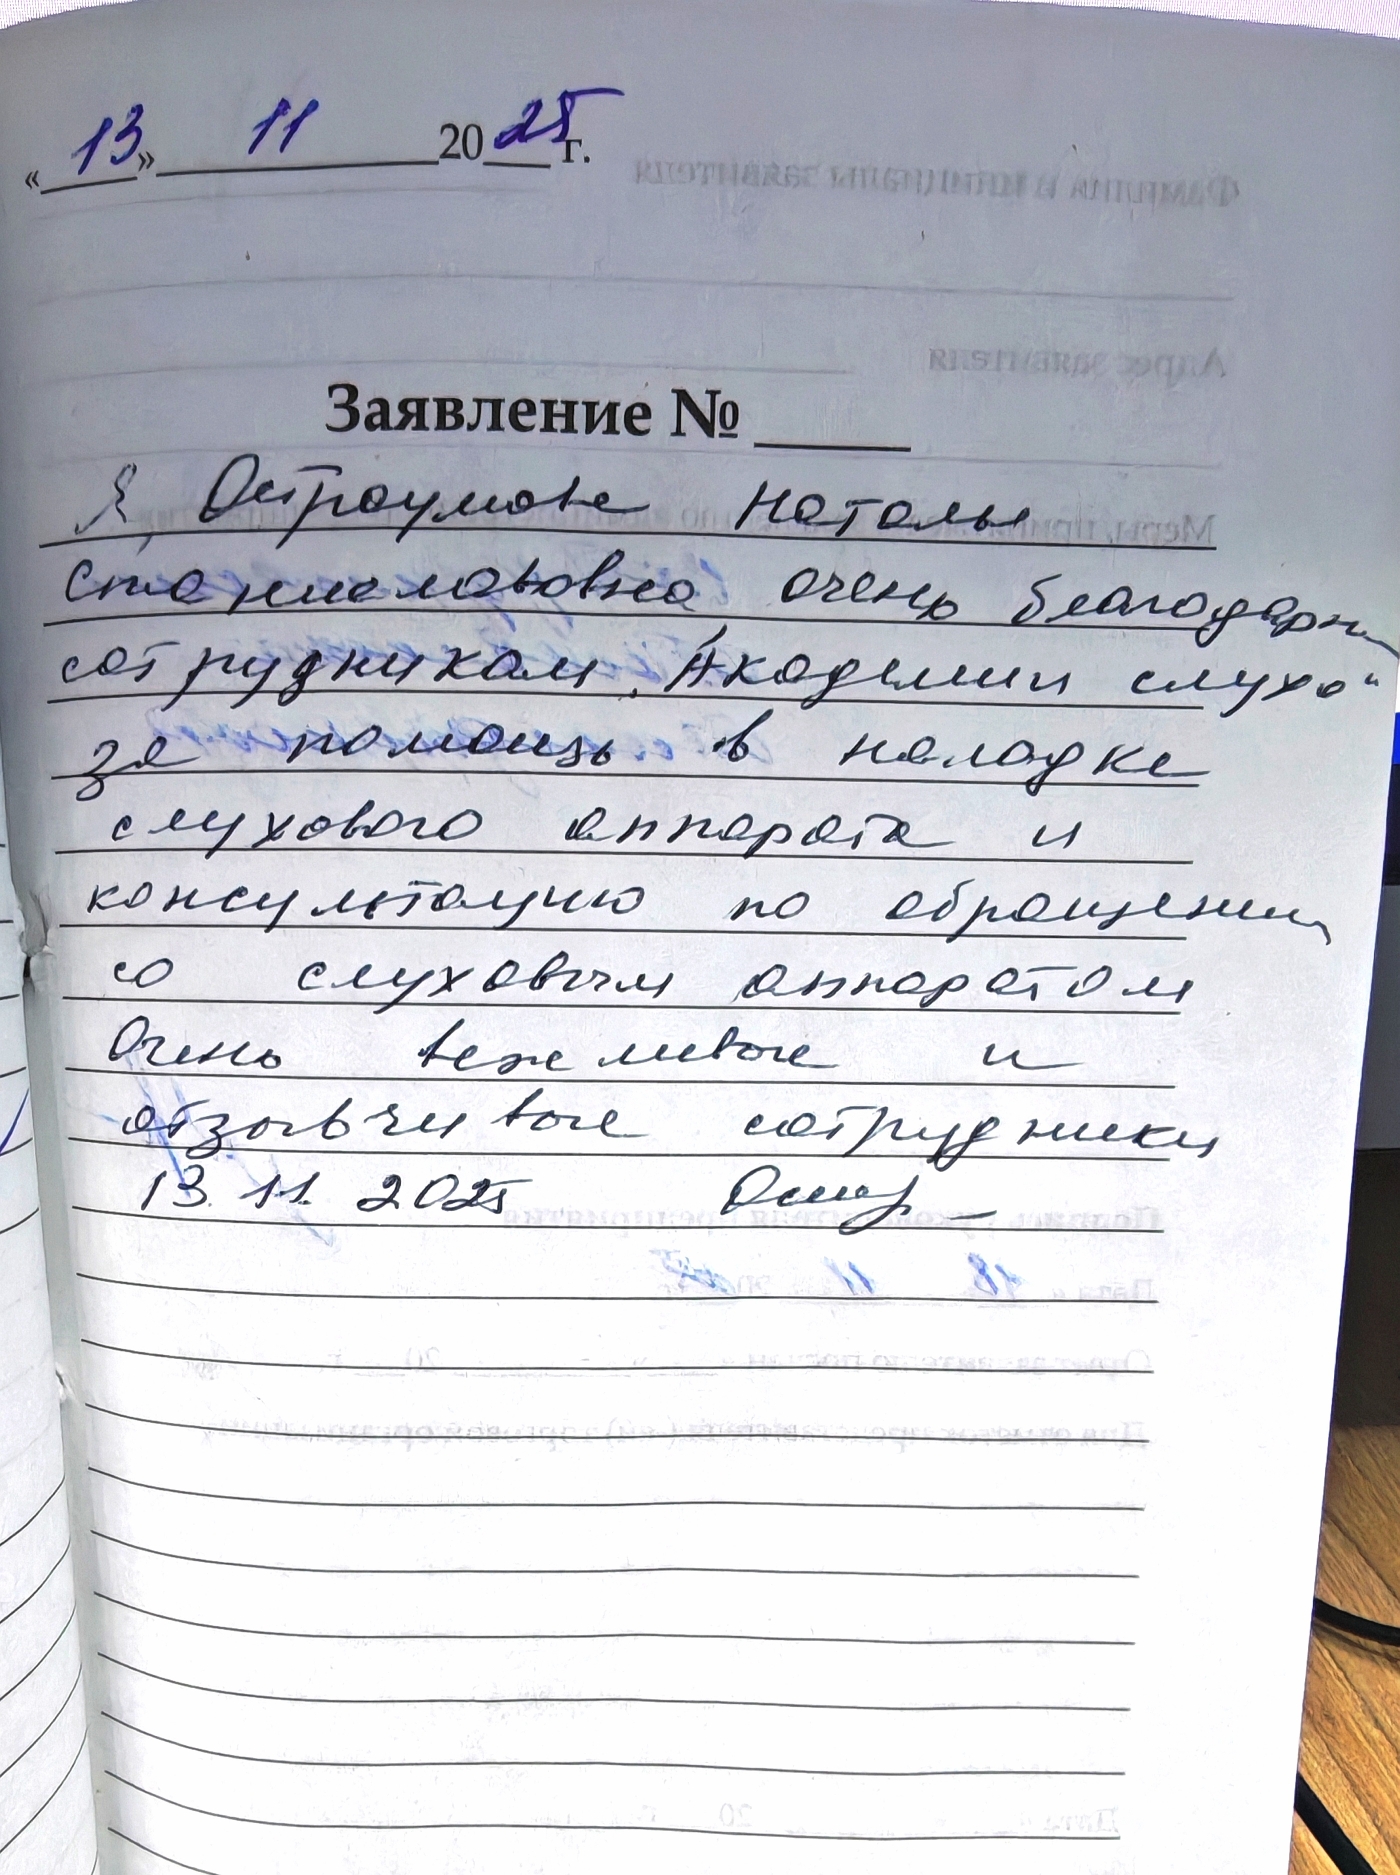 «13» 11 2025 г.
Заявление № ____
Я, Остроумова Наталья
Станиславовна очень благодарна
сотрудникам "Академии слуха"
за помощь в наладке
слухового аппарата и
консультацию по обращению
со слуховым аппаратом
Очень вежливые и
отзывчивые сотрудники
13.11.2025